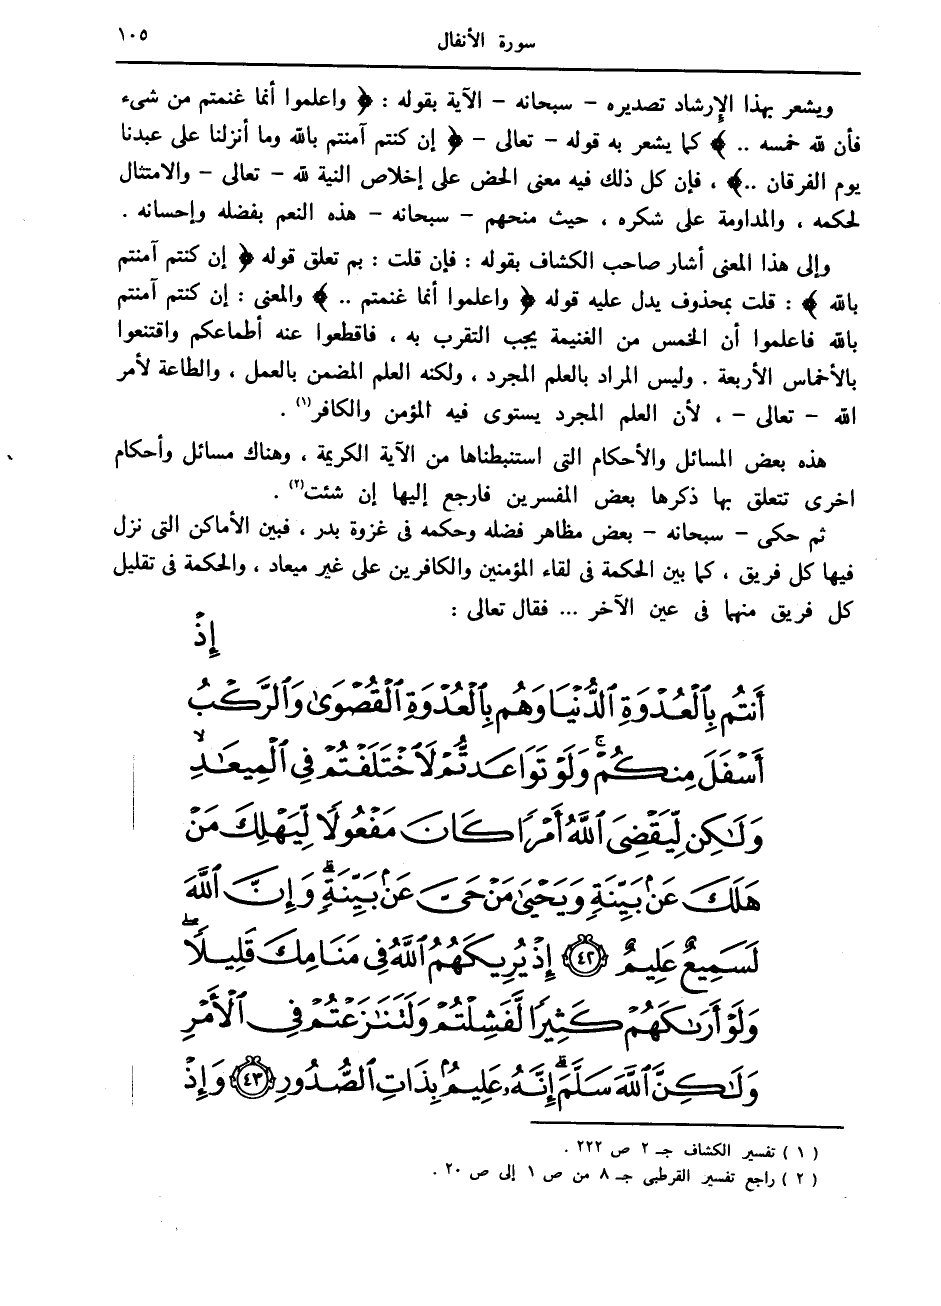 سورة الأنفال
١٠٥
ويشعر بهذا الإرشاد تصديره – سبحانه – الآية بقوله : ﴿ واعلموا أنما غنمتم من شىء
فأن لله خمسه .. ﴾ كما يشعر به قوله – تعالى – ﴿ إن كنتم آمنتم بالله وما أنزلنا على عبدنا
يوم الفرقان ..﴾ ، فإن كل ذلك فيه معنى الحض على إخلاص النية لله – تعالى – والامتثال
لحكمه ، والمداومة على شكره ، حيث منحهم – سبحانه – هذه النعم بفضله وإحسانه .
وإلى هذا المعنى أشار صاحب الكشاف بقوله : فإن قلت : بم تعلق قوله ﴿ إن كنتم آمنتم
بالله ﴾ : قلت بمحذوف يدل عليه قوله ﴿ واعلموا أنما غنمتم .. ﴾ والمعنى : إن كنتم آمنتم
بالله فاعلموا أن الخمس من الغنيمة يجب التقرب به ، فاقطعوا عنه أطماعكم واقتنعوا
بالأخماس الأربعة . وليس المراد بالعلم المجرد ، ولكنه العلم المضمن بالعمل ، والطاعة لأمر
الله – تعالى – ، لأن العلم المجرد يستوى فيه المؤمن والكافر(١) .
هذه بعض المسائل والأحكام التى استنبطناها من الآية الكريمة ، وهناك مسائل وأحكام
اخرى تتعلق بها ذكرها بعض المفسرين فارجع إليها إن شئت(٢) .
ثم حكى – سبحانه – بعض مظاهر فضله وحكمه فى غزوة بدر ، فبين الأماكن التى نزل
فيها كل فريق ، كما بين الحكمة فى لقاء المؤمنين والكافرين على غير ميعاد ، والحكمة فى تقليل
كل فريق منهما فى عين الآخر ... فقال تعالى :
إِذْ
أَنتُم بِٱلْعُدْوَةِ ٱلدُّنْيَا وَهُم بِٱلْعُدْوَةِ ٱلْقُصْوَىٰ وَٱلرَّكْبُ
أَسْفَلَ مِنكُمْۚ وَلَوْ تَوَاعَدتُّمْ لَٱخْتَلَفْتُمْ فِي ٱلْمِيعَٰدِۙ
وَلَٰكِن لِّيَقْضِيَ ٱللَّهُ أَمْرًا كَانَ مَفْعُولًا لِّيَهْلِكَ مَنْ
هَلَكَ عَنۢ بَيِّنَةٍ وَيَحْيَىٰ مَنْ حَيَّ عَنۢ بَيِّنَةٍۗ وَإِنَّ ٱللَّهَ
لَسَمِيعٌ عَلِيمٌ ٤٢ إِذْ يُرِيكَهُمُ ٱللَّهُ فِي مَنَامِكَ قَلِيلًاۖ
وَلَوْ أَرَىٰكَهُمْ كَثِيرًا لَّفَشِلْتُمْ وَلَتَنَٰزَعْتُمْ فِي ٱلْأَمْرِ
وَلَٰكِنَّ ٱللَّهَ سَلَّمَۗ إِنَّهُۥ عَلِيمٌۢ بِذَاتِ ٱلصُّدُورِ ٤٣ وَإِذْ
( ١ ) تفسير الكشاف جـ ٢ ص ٢٢٢ .
( ٢ ) راجع تفسير القرطبى جـ ٨ من ص ١ إلى ص ٢٠ .